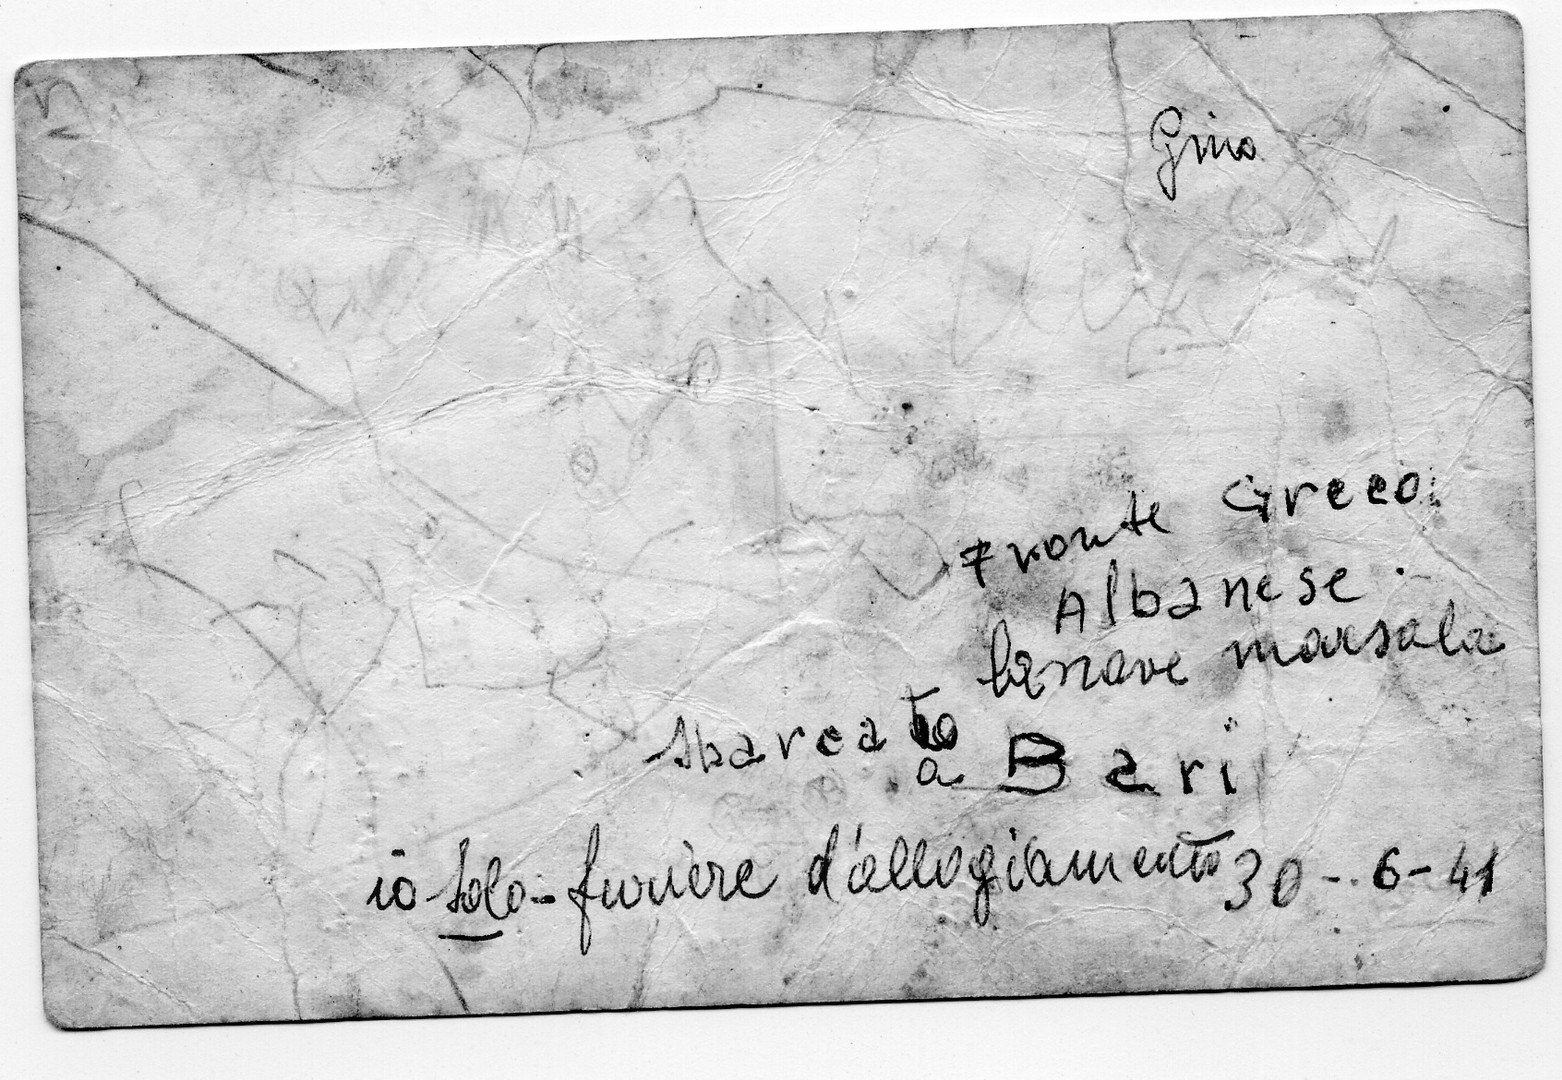 Gino
Fronte Greco
Albanese
la nave marsala
sbarcato
a Bari
io solo - furiere d'allogiamento 30-6-41